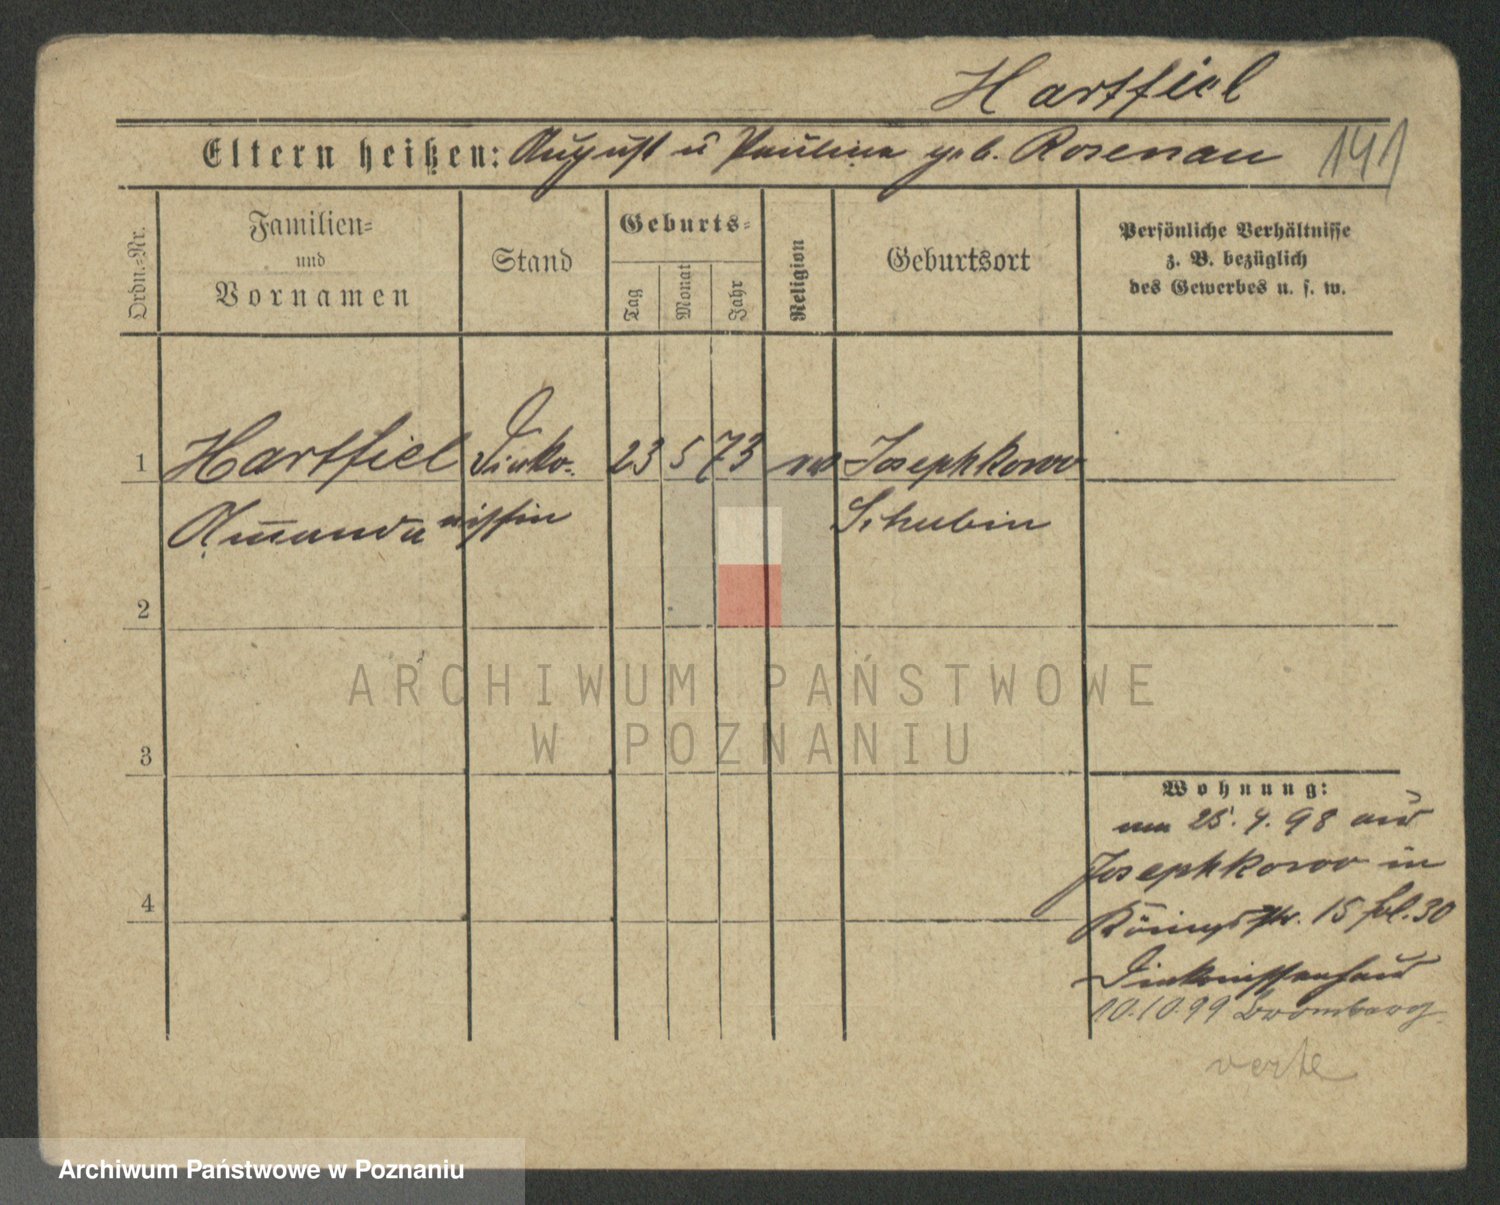 Hartfiel
Eltern heißen: August u Pauline geb. Rosenau
141
Ordn.-Nr.
Familien-
und
Vornamen
Stand
Geburts-
Tag
Monat
Jahr
Religion
Geburtsort
Persönliche Verhältnisse
z. B. bezüglich
des Gewerbes u. s. w.
1 Hartfiel Diako- 23 5 73 ev Josephkowo
Amanda nissin Schubin
2
3
4
Wohnung:
am 25. 4. 98 aus
Josephkowo in
Königstr. 15 bl. 30
Diakonissenhaus
10.10.99 Bromberg
verte
ARCHIWUM PAŃSTWOWE
W POZNANIU
Archiwum Państwowe w Poznaniu